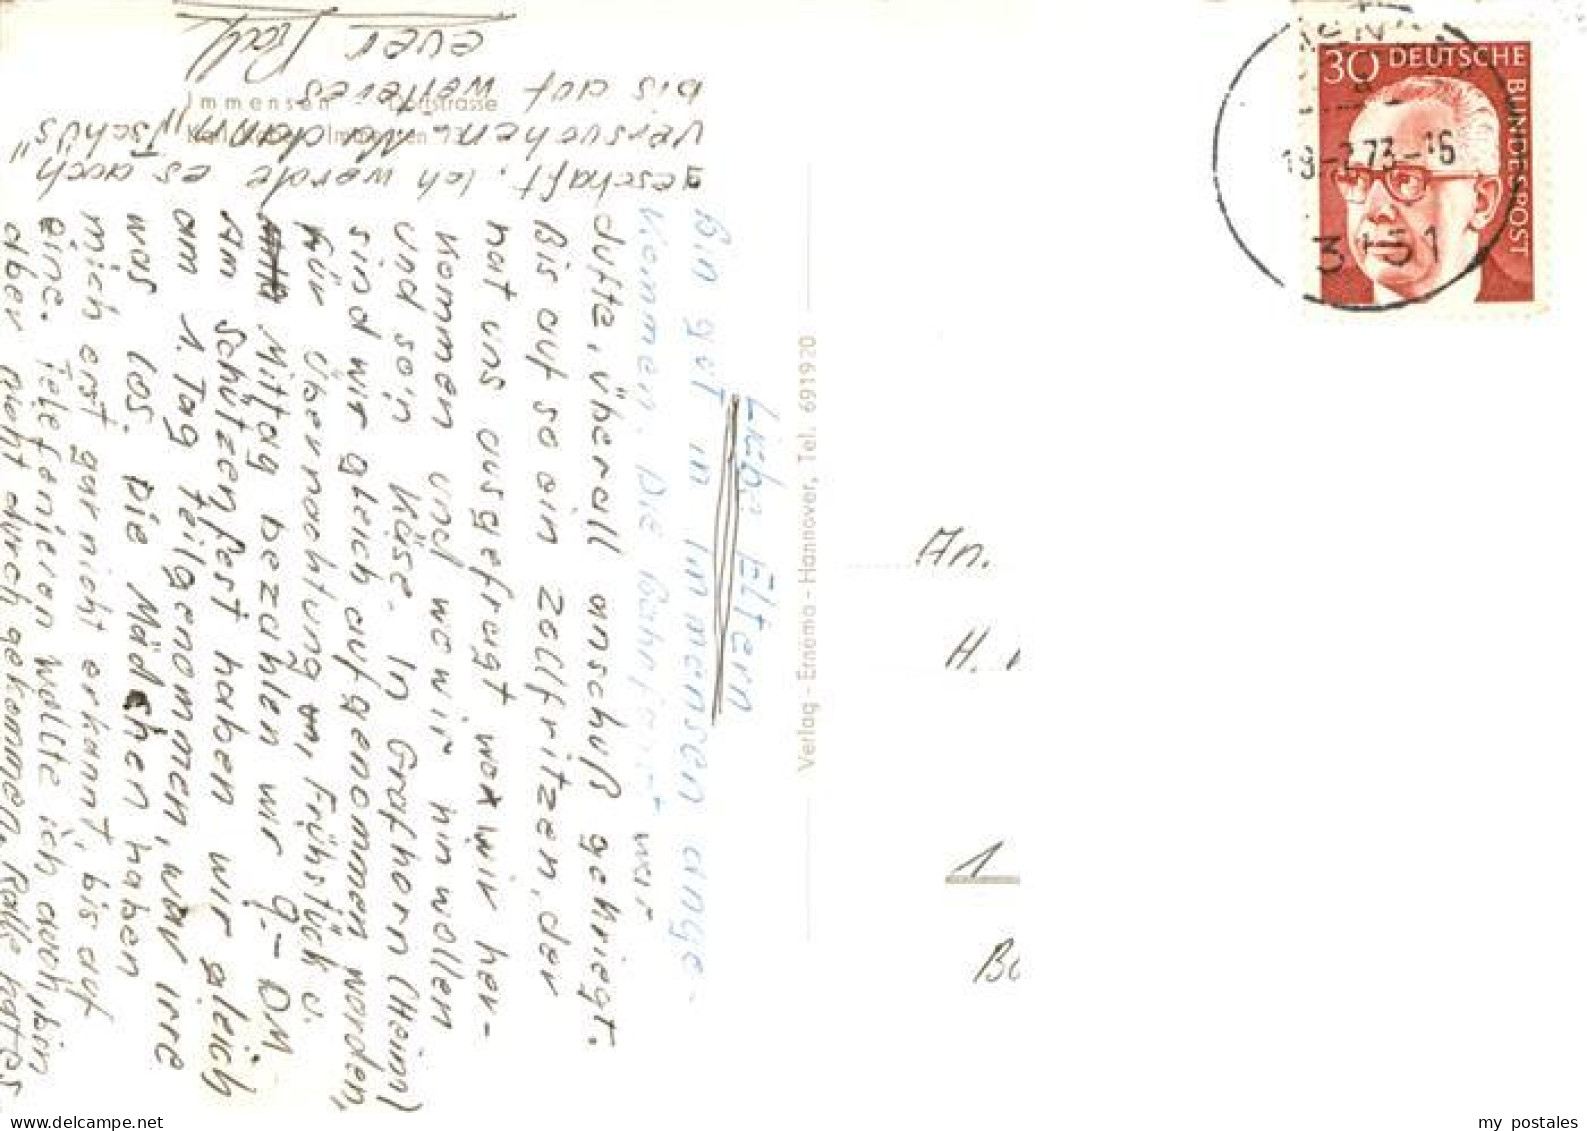 Liebe Eltern
Bin gut in Immensen ange-
kommen. Die Bahnfahrt war
dufte, überall anschluß gekriegt.
Bis auf so ein Zollfritzen, der
hat uns ausgefragt wo wir her-
kommen und wo wir hin wollen
und sein Käse. In Grafhorn (Heim)
sind wir gleich aufgenommen worden,
für Übernachtung, Frühstück u.
Mittag bezahlen wir 9.- DM
Am Schützenfest haben wir gleich
am 1. Tag teilgenommen, war irre
was los. Die Mädchen haben
mich erst gar nicht erkannt, bis auf
eine. Telefonieren wollte ich auch, bin
aber nicht durch gekommen, Ralle hat es
geschaft. Ich werde es auch
versuchen. Na dann „Tschüs"
bis auf weiteres
euer
Immensen Dorfstrasse
Verlag - Ernamo - Hannover, Tel. 691920
An.
H.
1
Bo
30 DEUTSCHE
BUNDESPOST
18.-2.73-16
3151
my postales